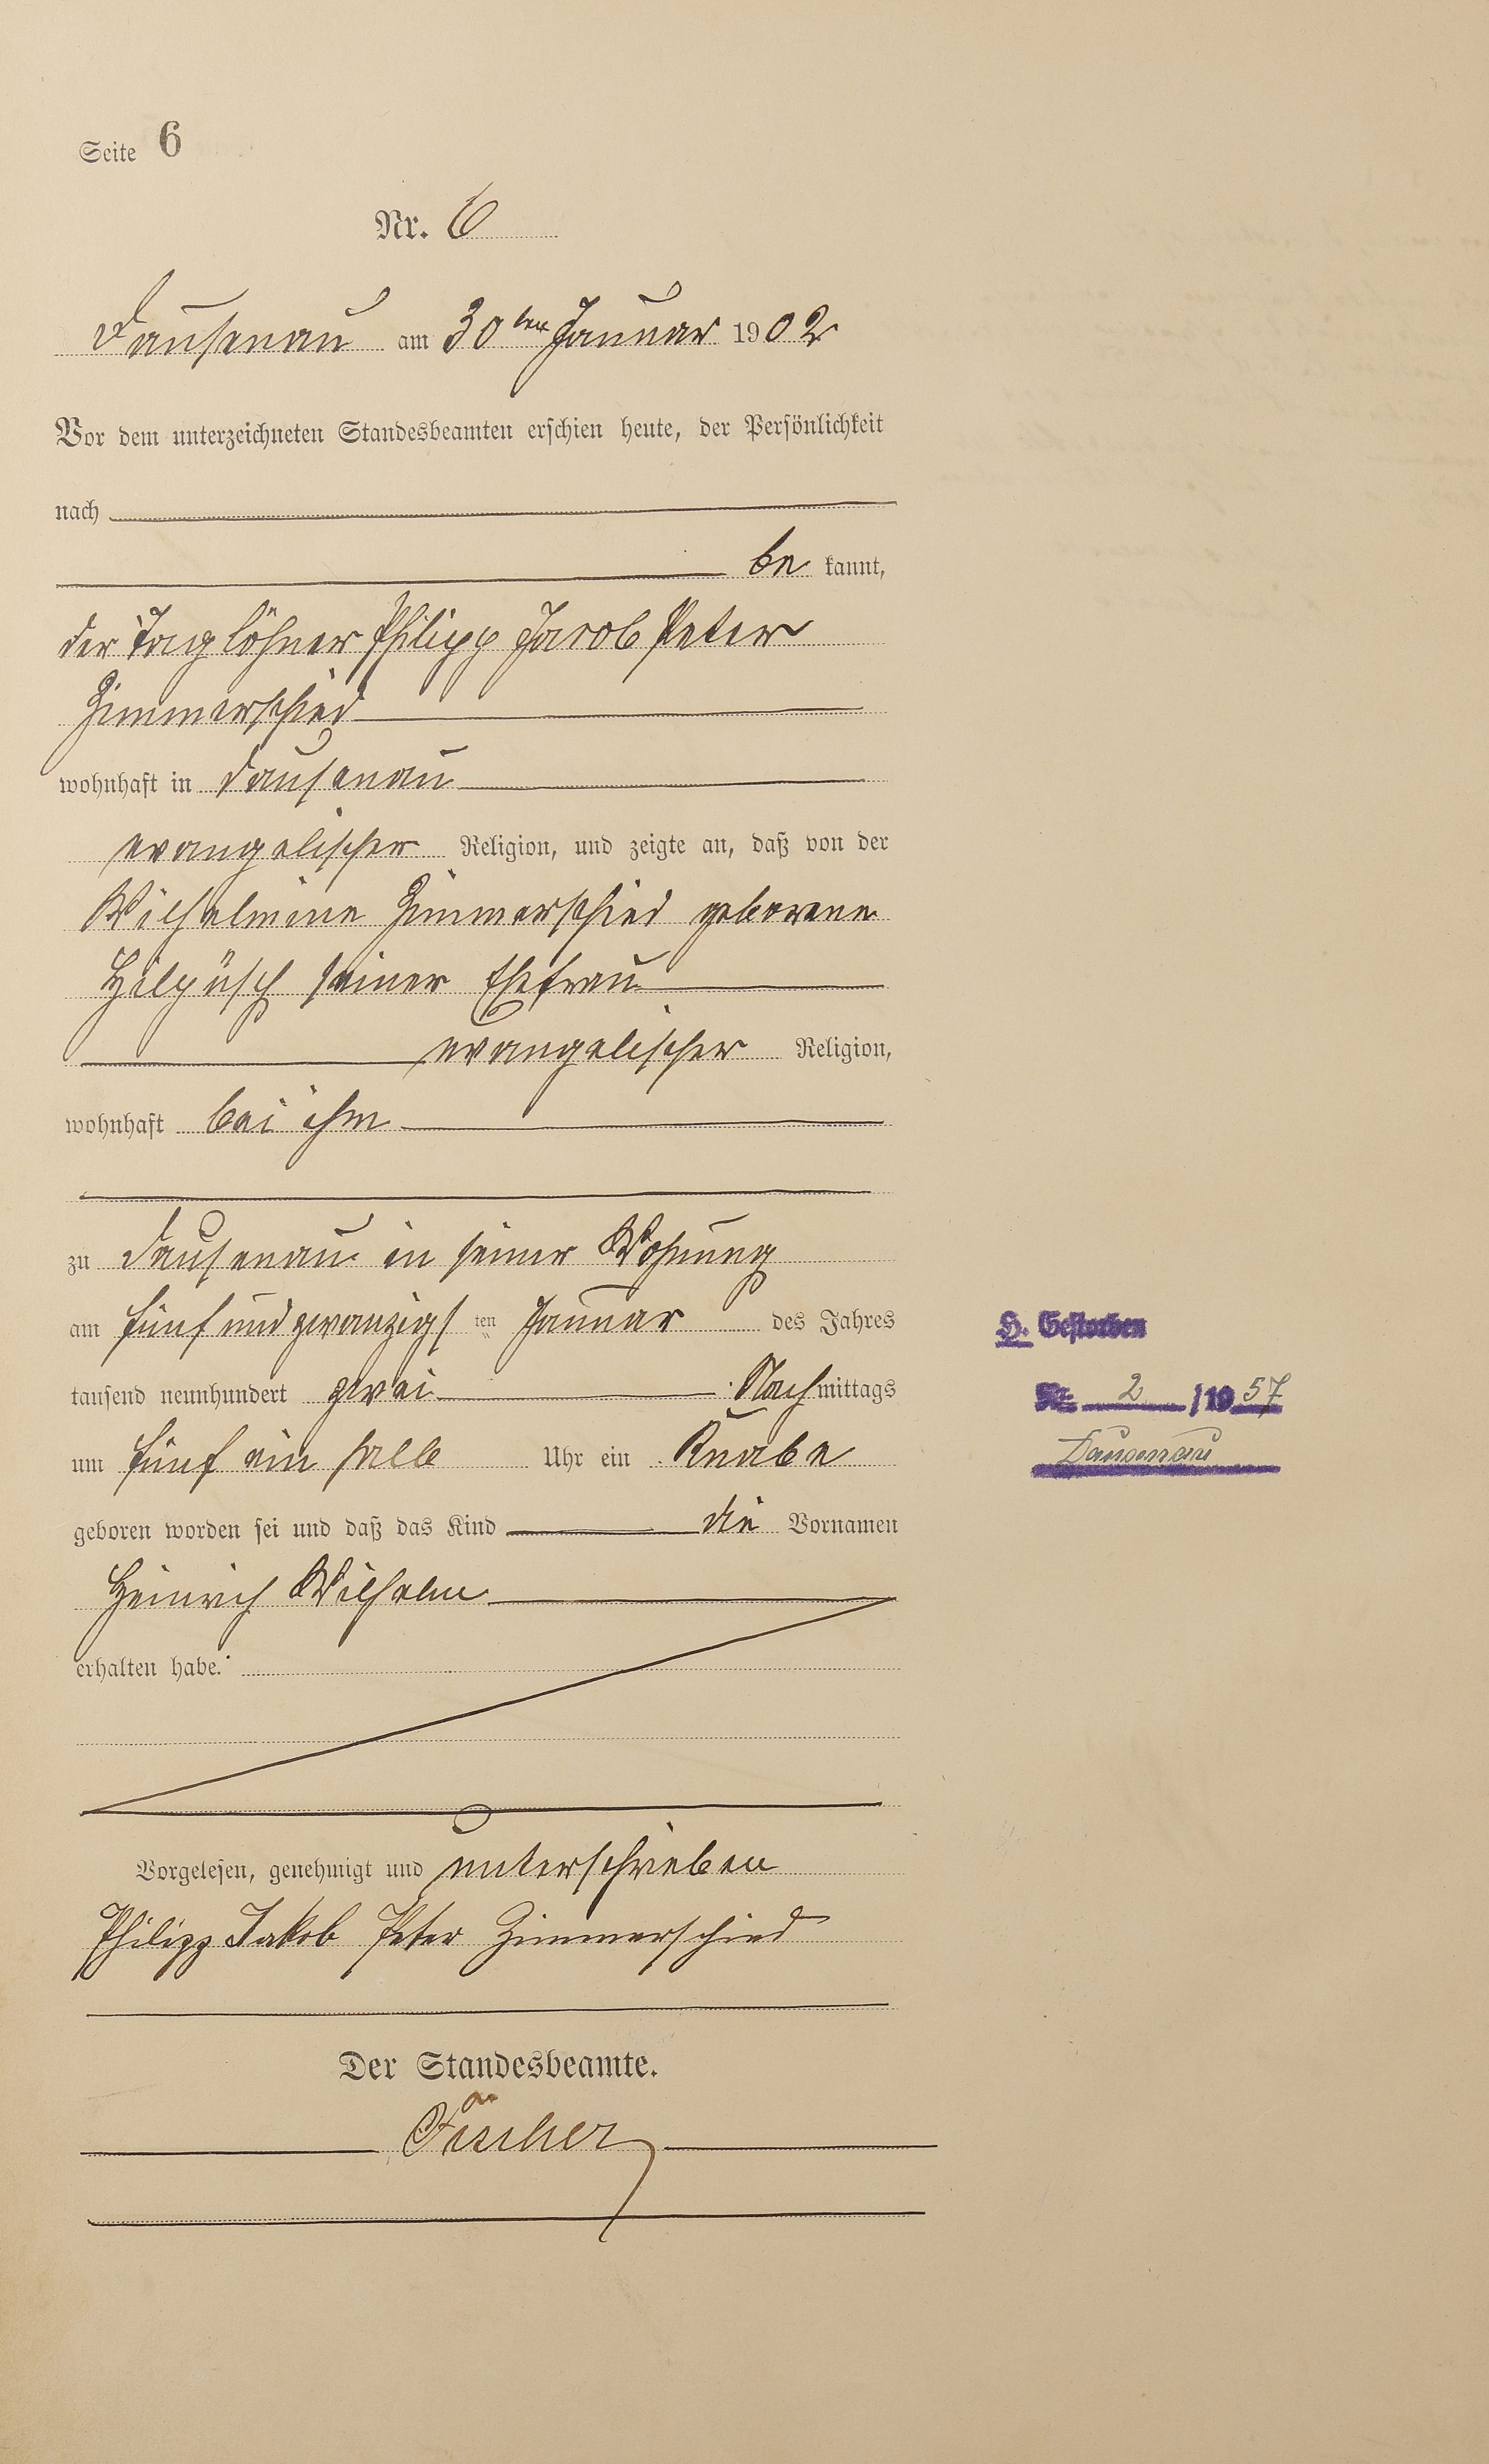 Seite 6
Nr. 6
Dausenau am 30ten Januar 1902
Vor dem unterzeichneten Standesbeamten erschien heute, der Persönlichkeit
nach
be kannt,
der Taglöhner Philipp Jacob Peter
Zimmerschied
wohnhaft in Dausenau
evangelischer Religion, und zeigte an, daß von der
Wilhelmine Zimmerschied geborene
Hilpüsch seiner Ehefrau
evangelischer Religion,
wohnhaft bei ihm
zu Dausenau in seiner Wohnung
am fünf und zwanzigsten Januar des Jahres
tausend neunhundert zwei Nachmittags
um fünf ein halb Uhr ein Knabe
geboren worden sei und daß das Kind die Vornamen
Heinrich Wilhelm
erhalten habe.
Vorgelesen, genehmigt und unterschrieben
Philipp Jakob Peter Zimmerschied
Der Standesbeamte.
Fischer
H. Gestorben
Nr. 2 /1957
Dausenau